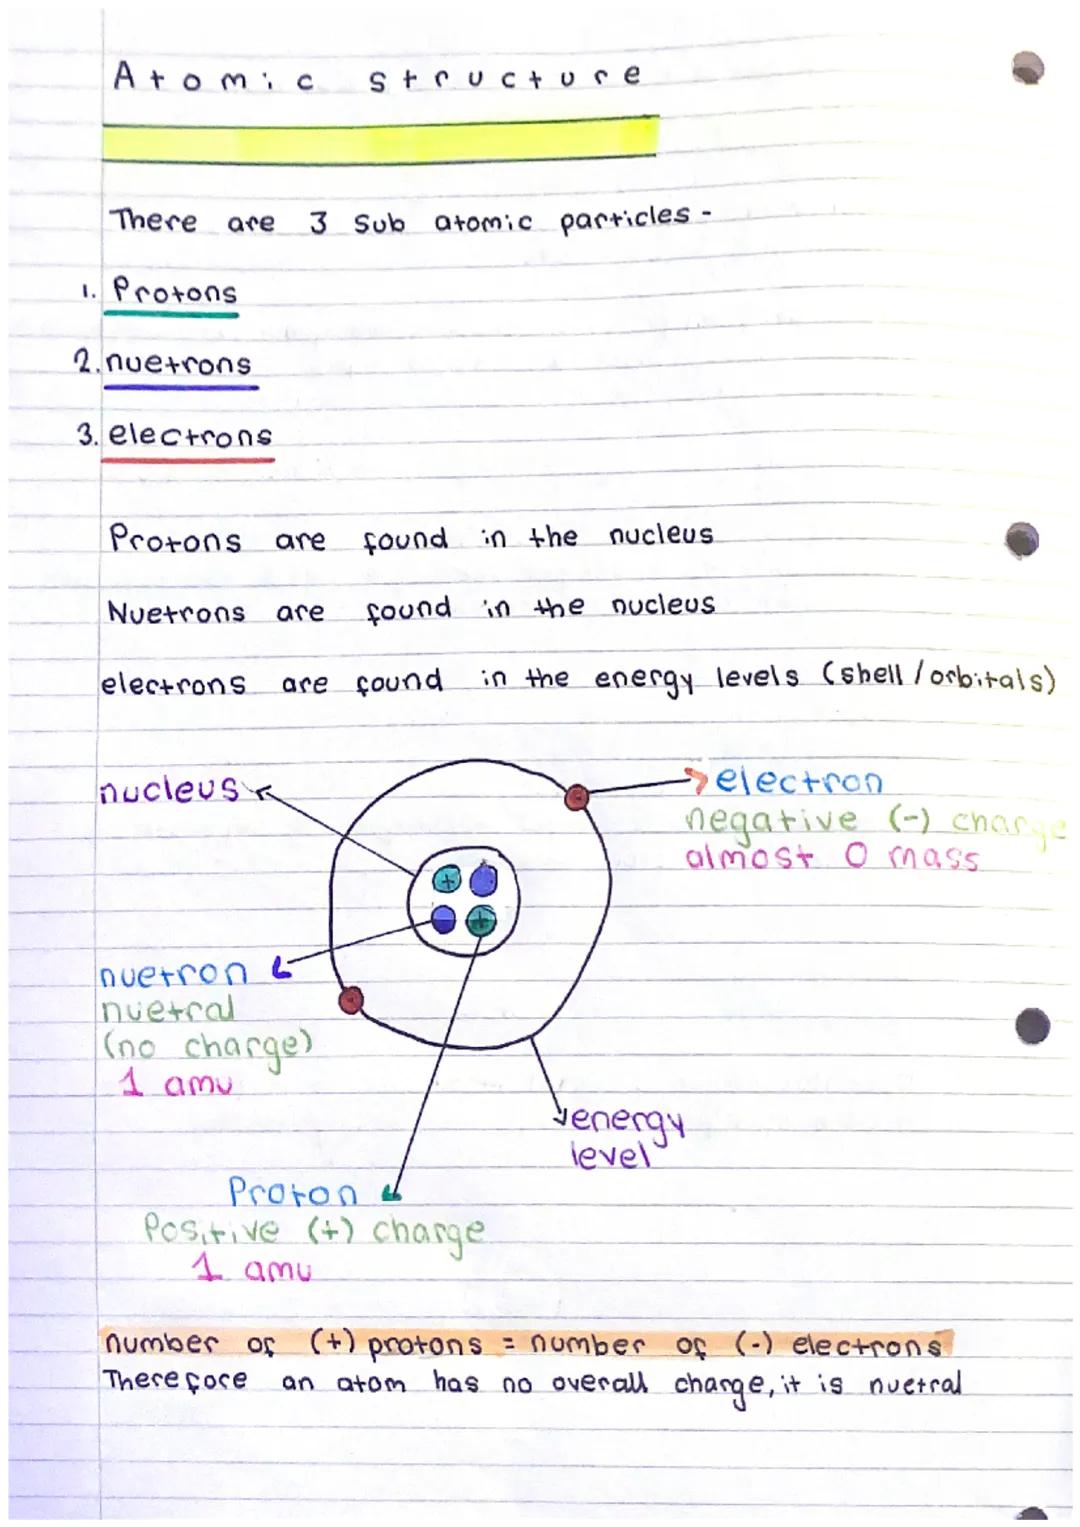 Atomic structure
There are 3 Sub atomic particles -
1. Protons
2. nuetrons
3. electrons
Protons are found in the nucleus
Nuetrons are found in the nucleus
electrons are found in the energy levels (shell/orbitals)
nucleus
electron
negative (-) charge
almost 0 mass
+
+
nuetron
nuetral
(no charge)
1 amu
energy
level
Proton
Positive (+) charge
1 amu
number of (+) protons = number of (-) electrons
Therefore an atom has no overall charge, it is nuetral